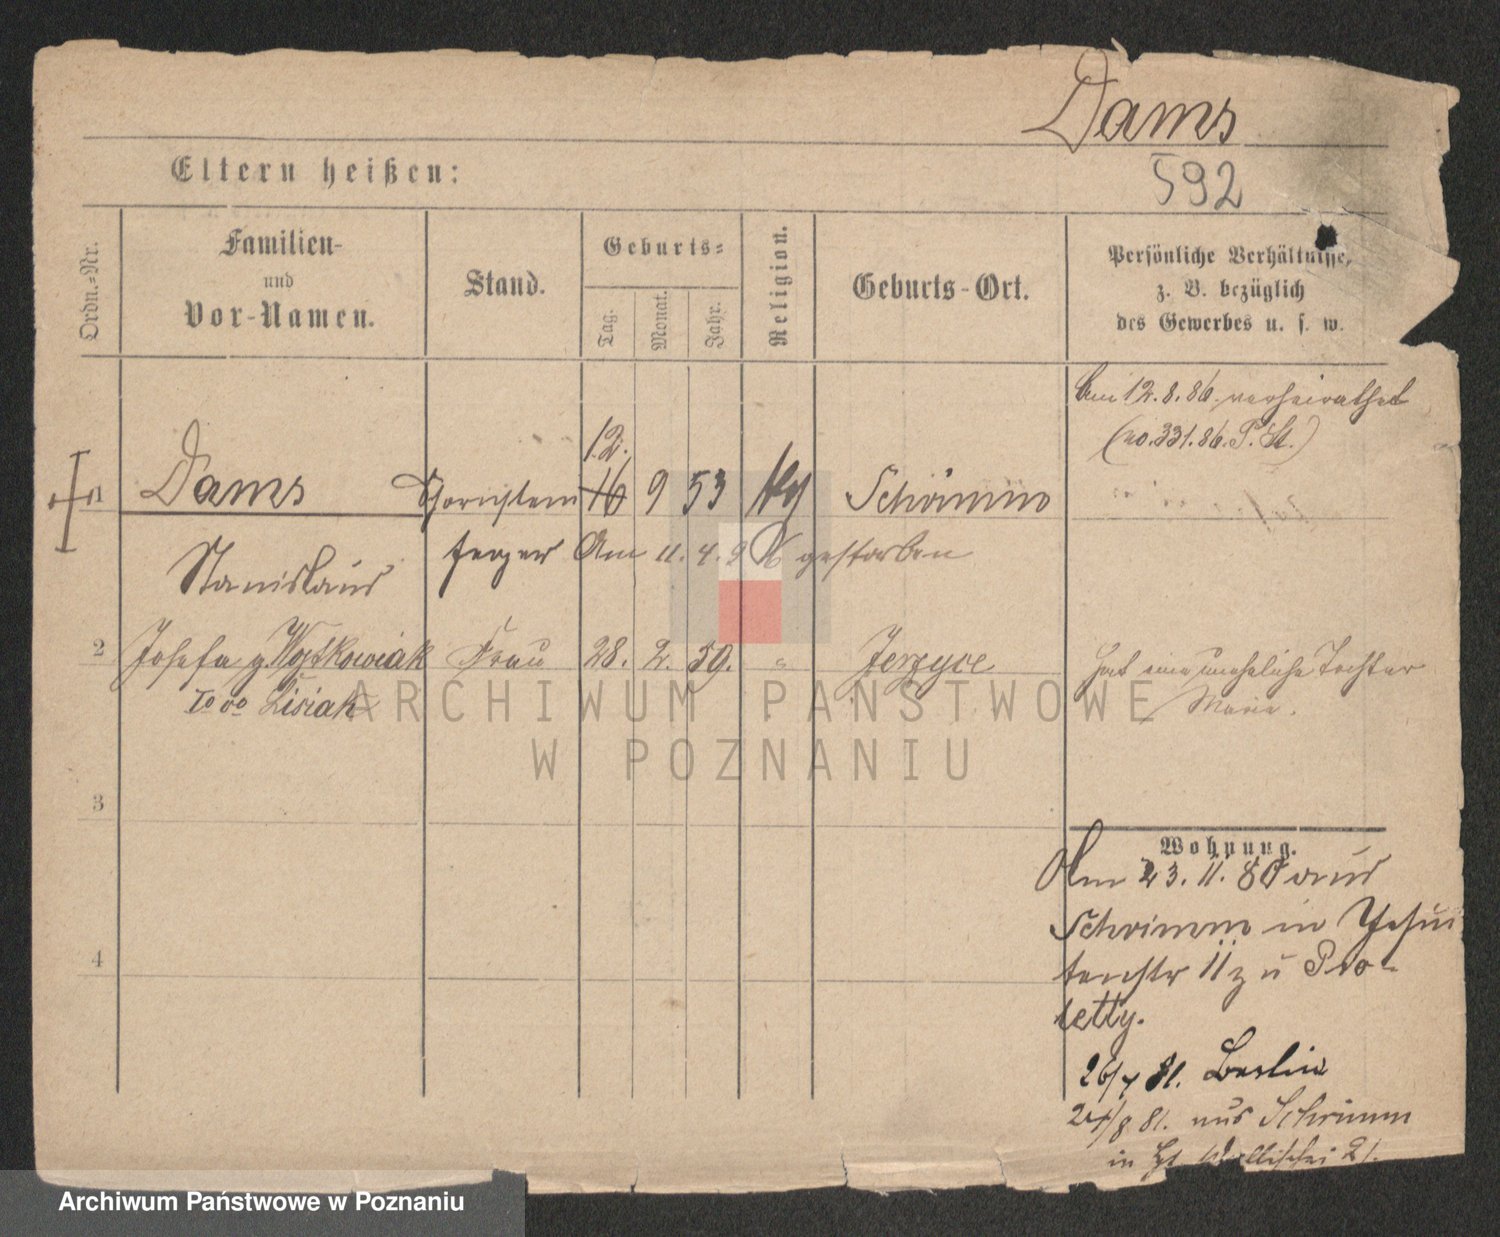 Dams
Eltern heißen:
592
Ordn.-Nr.
Familien-
und
Vor-Namen.
Stand.
Geburts-
Tag.
Monat.
Jahr.
Religion.
Geburts-Ort.
Persönliche Verhältnisse,
z. B. bezüglich
des Gewerbes u. s. w.
Am 12.8.86. verheirathet
(no. 331.86. P. St.)
12.
1 Dams Schornstein 16 9 53 Schrimm
Stanislaus feger Am 11.4.96 gestorben
2 Josefa g. Wojtkowiak Frau 28. 2. 50. " Jerzyce
Io vo Lisiak
Hat eine uneheliche Tochter
Marie.
3
4
Wohnung.
Am 23.11.80 aus
Schrimm in Jesui
tenstr 11 z u Pro-
fetty.
26/7 81. Berlin
24/8 81. aus Schrimm
in Wallischei 21.
ARCHIWUM PAŃSTWOWE
W POZNANIU
Archiwum Państwowe w Poznaniu